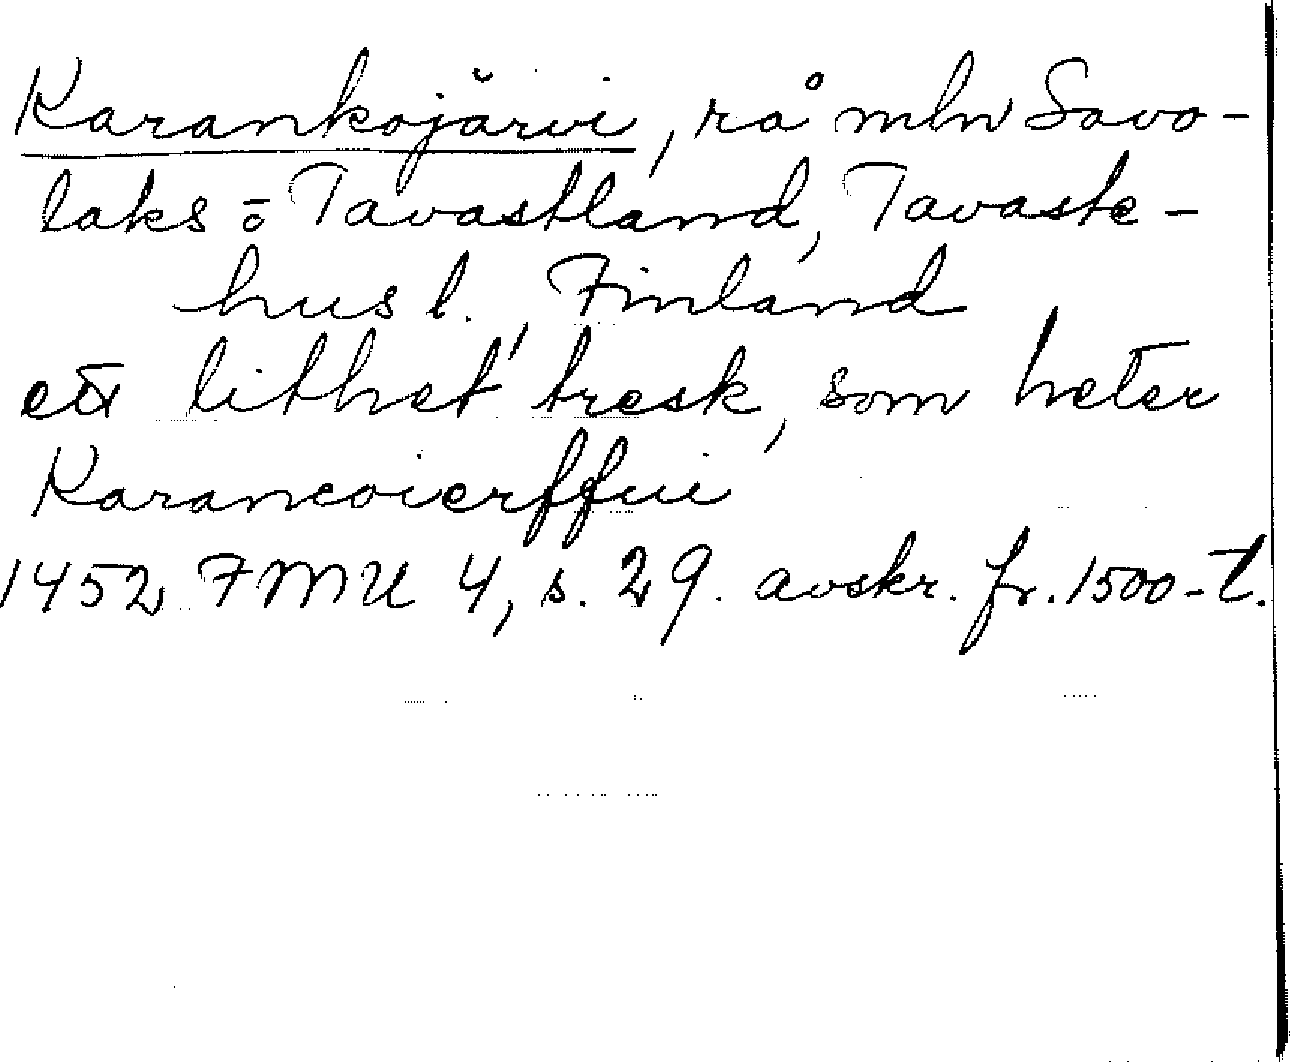 Karankojärvi, rå mln Savo-
laks o Tavastland, Tavaste-
hus l., Finland
ett lithet tresk, som heter
Karancoierffui
1452 FMU 4, s. 29. avskr. fr. 1500-t.